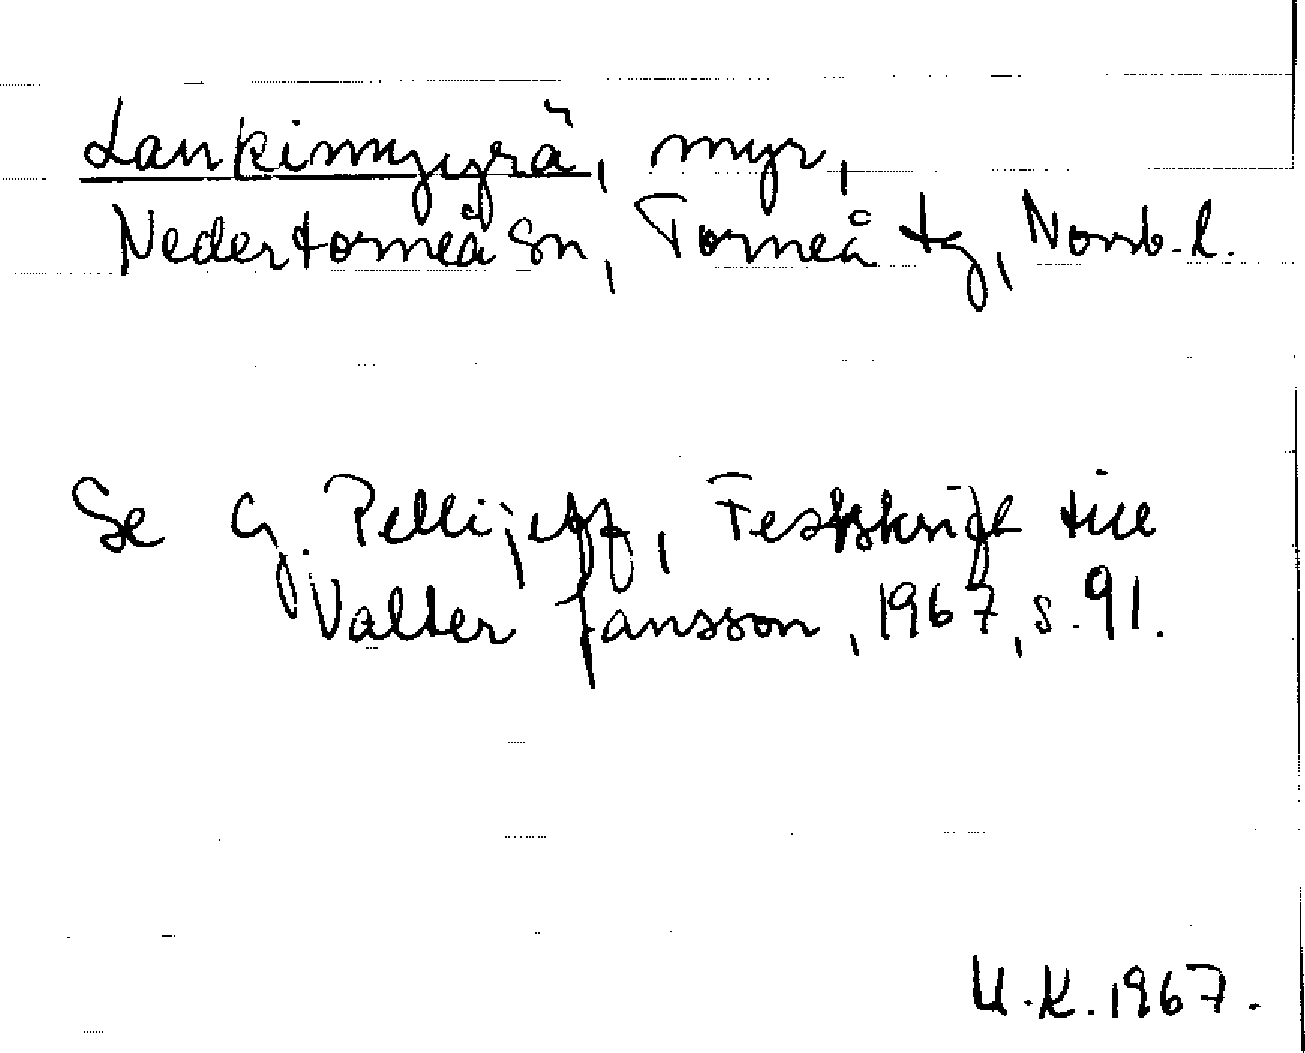 Lankimyyrä, myr,
Nedertorneå sn, Torneå tg, Norrb. l.
Se G. Pellijeff, Festskrift till
Valter Jansson, 1967, s. 91.
U.K. 1967.